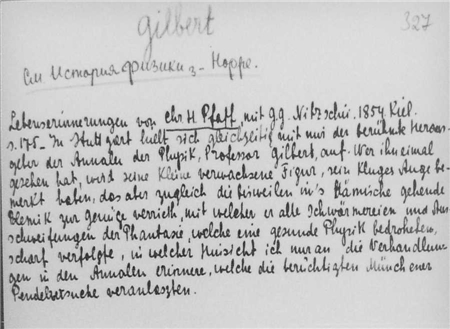 Gilbert
327
См История физики з- Hoppe.
Lebenserinnerungen von Chr H Pfaff, mit g.g. Nitzschii. 1854. Kiel.
s. 175. In Stuttgart hielt sich gleichzeitig mit mir der berühmte Heraus-
geber der Annalen der Physik, Professor Gilbert, auf. Wer ihn einmal
gesehen hat, wird seine kleine verwachsene Figur, sein kluges Auge be-
merkt haben, das aber zugleich die bisweilen in's Hämische gehende
Polemik zur Genüge verrieth, mit welcher er alle Schwärmereien und Aus
schweifungen der Phantasie, welche eine gesunde Physik bedrohten,
scharf verfolgte, in welcher Hinsicht ich nur an die Verhandlun
gen in den Annalen erinnere, welche die berüchtigten Münchener
Pendelversuche veranlassten.